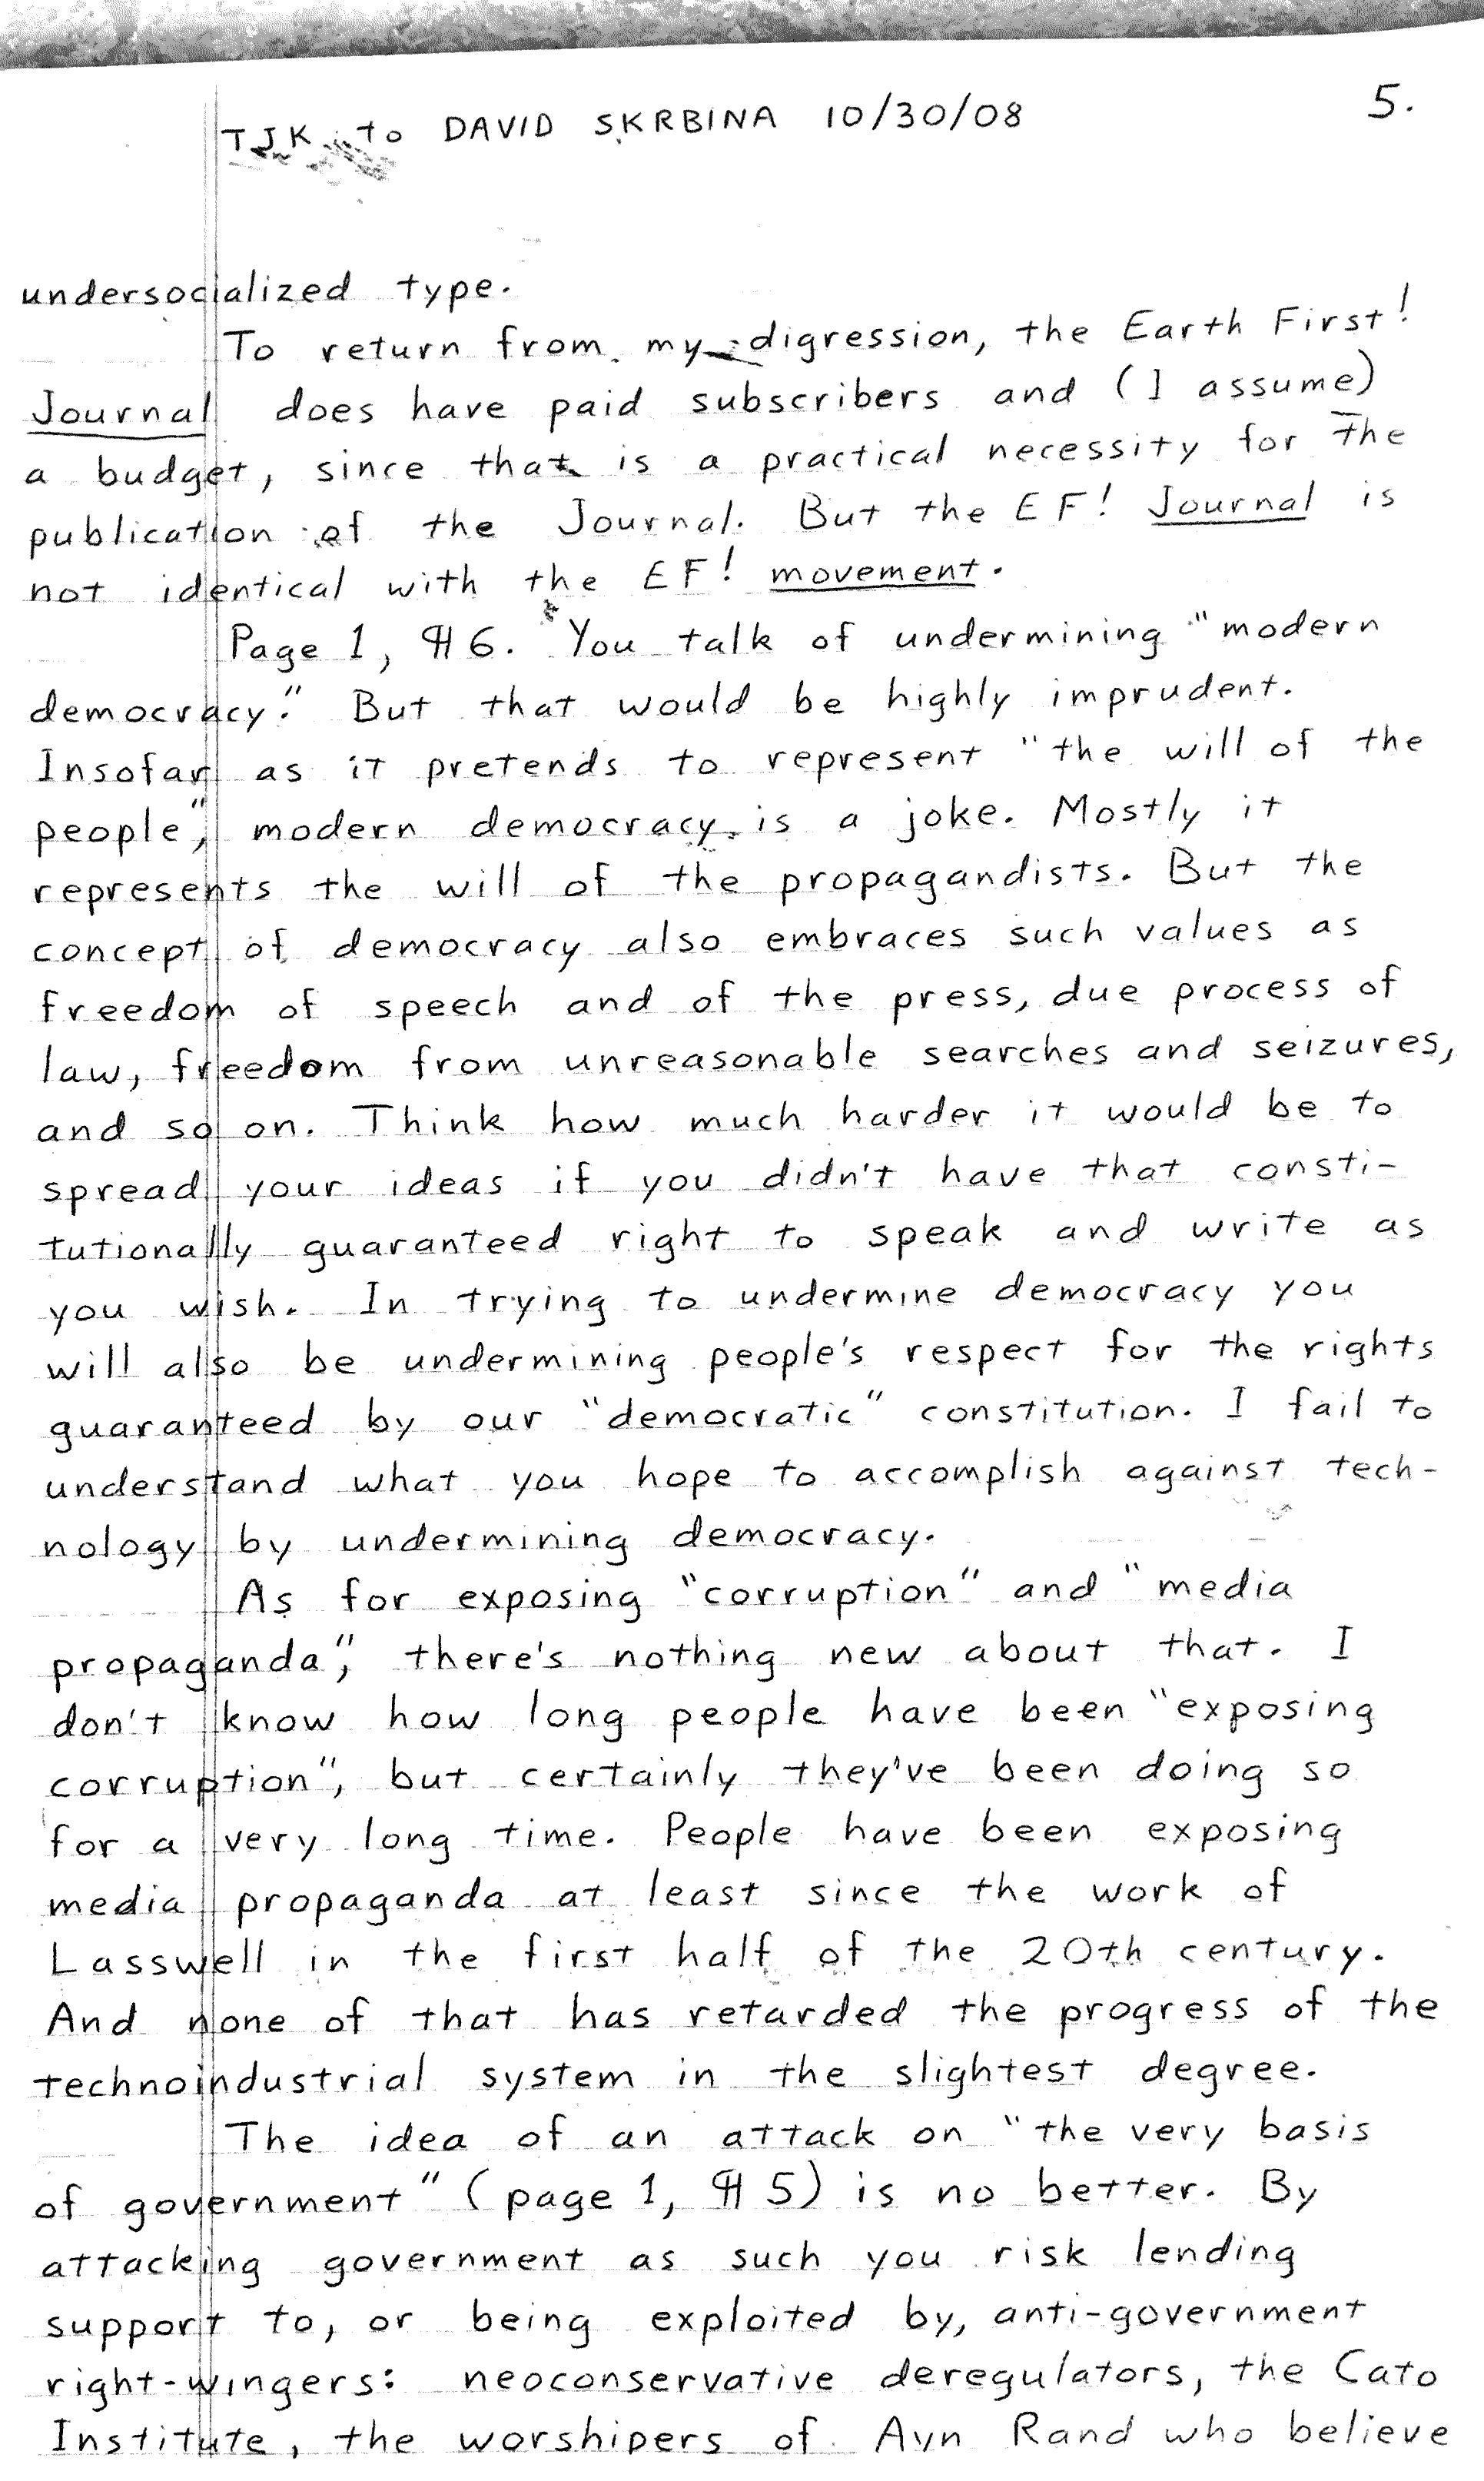 5.
TJK to DAVID SKRBINA 10/30/08
undersocialized type.
To return from my digression, the Earth First!
Journal does have paid subscribers and (I assume)
a budget, since that is a practical necessity for the
publication of the Journal. But the EF! Journal is
not identical with the EF! movement.
Page 1, ¶6. You talk of undermining "modern
democracy." But that would be highly imprudent.
Insofar as it pretends to represent "the will of the
people", modern democracy is a joke. Mostly it
represents the will of the propagandists. But the
concept of democracy also embraces such values as
freedom of speech and of the press, due process of
law, freedom from unreasonable searches and seizures,
and so on. Think how much harder it would be to
spread your ideas if you didn't have that consti-
tutionally guaranteed right to speak and write as
you wish. In trying to undermine democracy you
will also be undermining people's respect for the rights
guaranteed by our "democratic" constitution. I fail to
understand what you hope to accomplish against tech-
nology by undermining democracy.
As for exposing "corruption" and "media
propaganda", there's nothing new about that. I
don't know how long people have been "exposing
corruption", but certainly they've been doing so
for a very long time. People have been exposing
media propaganda at least since the work of
Lasswell in the first half of the 20th century.
And none of that has retarded the progress of the
technoindustrial system in the slightest degree.
The idea of an attack on "the very basis
of government" (page 1, ¶5) is no better. By
attacking government as such you risk lending
support to, or being exploited by, anti-government
right-wingers: neoconservative deregulators, the Cato
Institute, the worshipers of Ayn Rand who believe